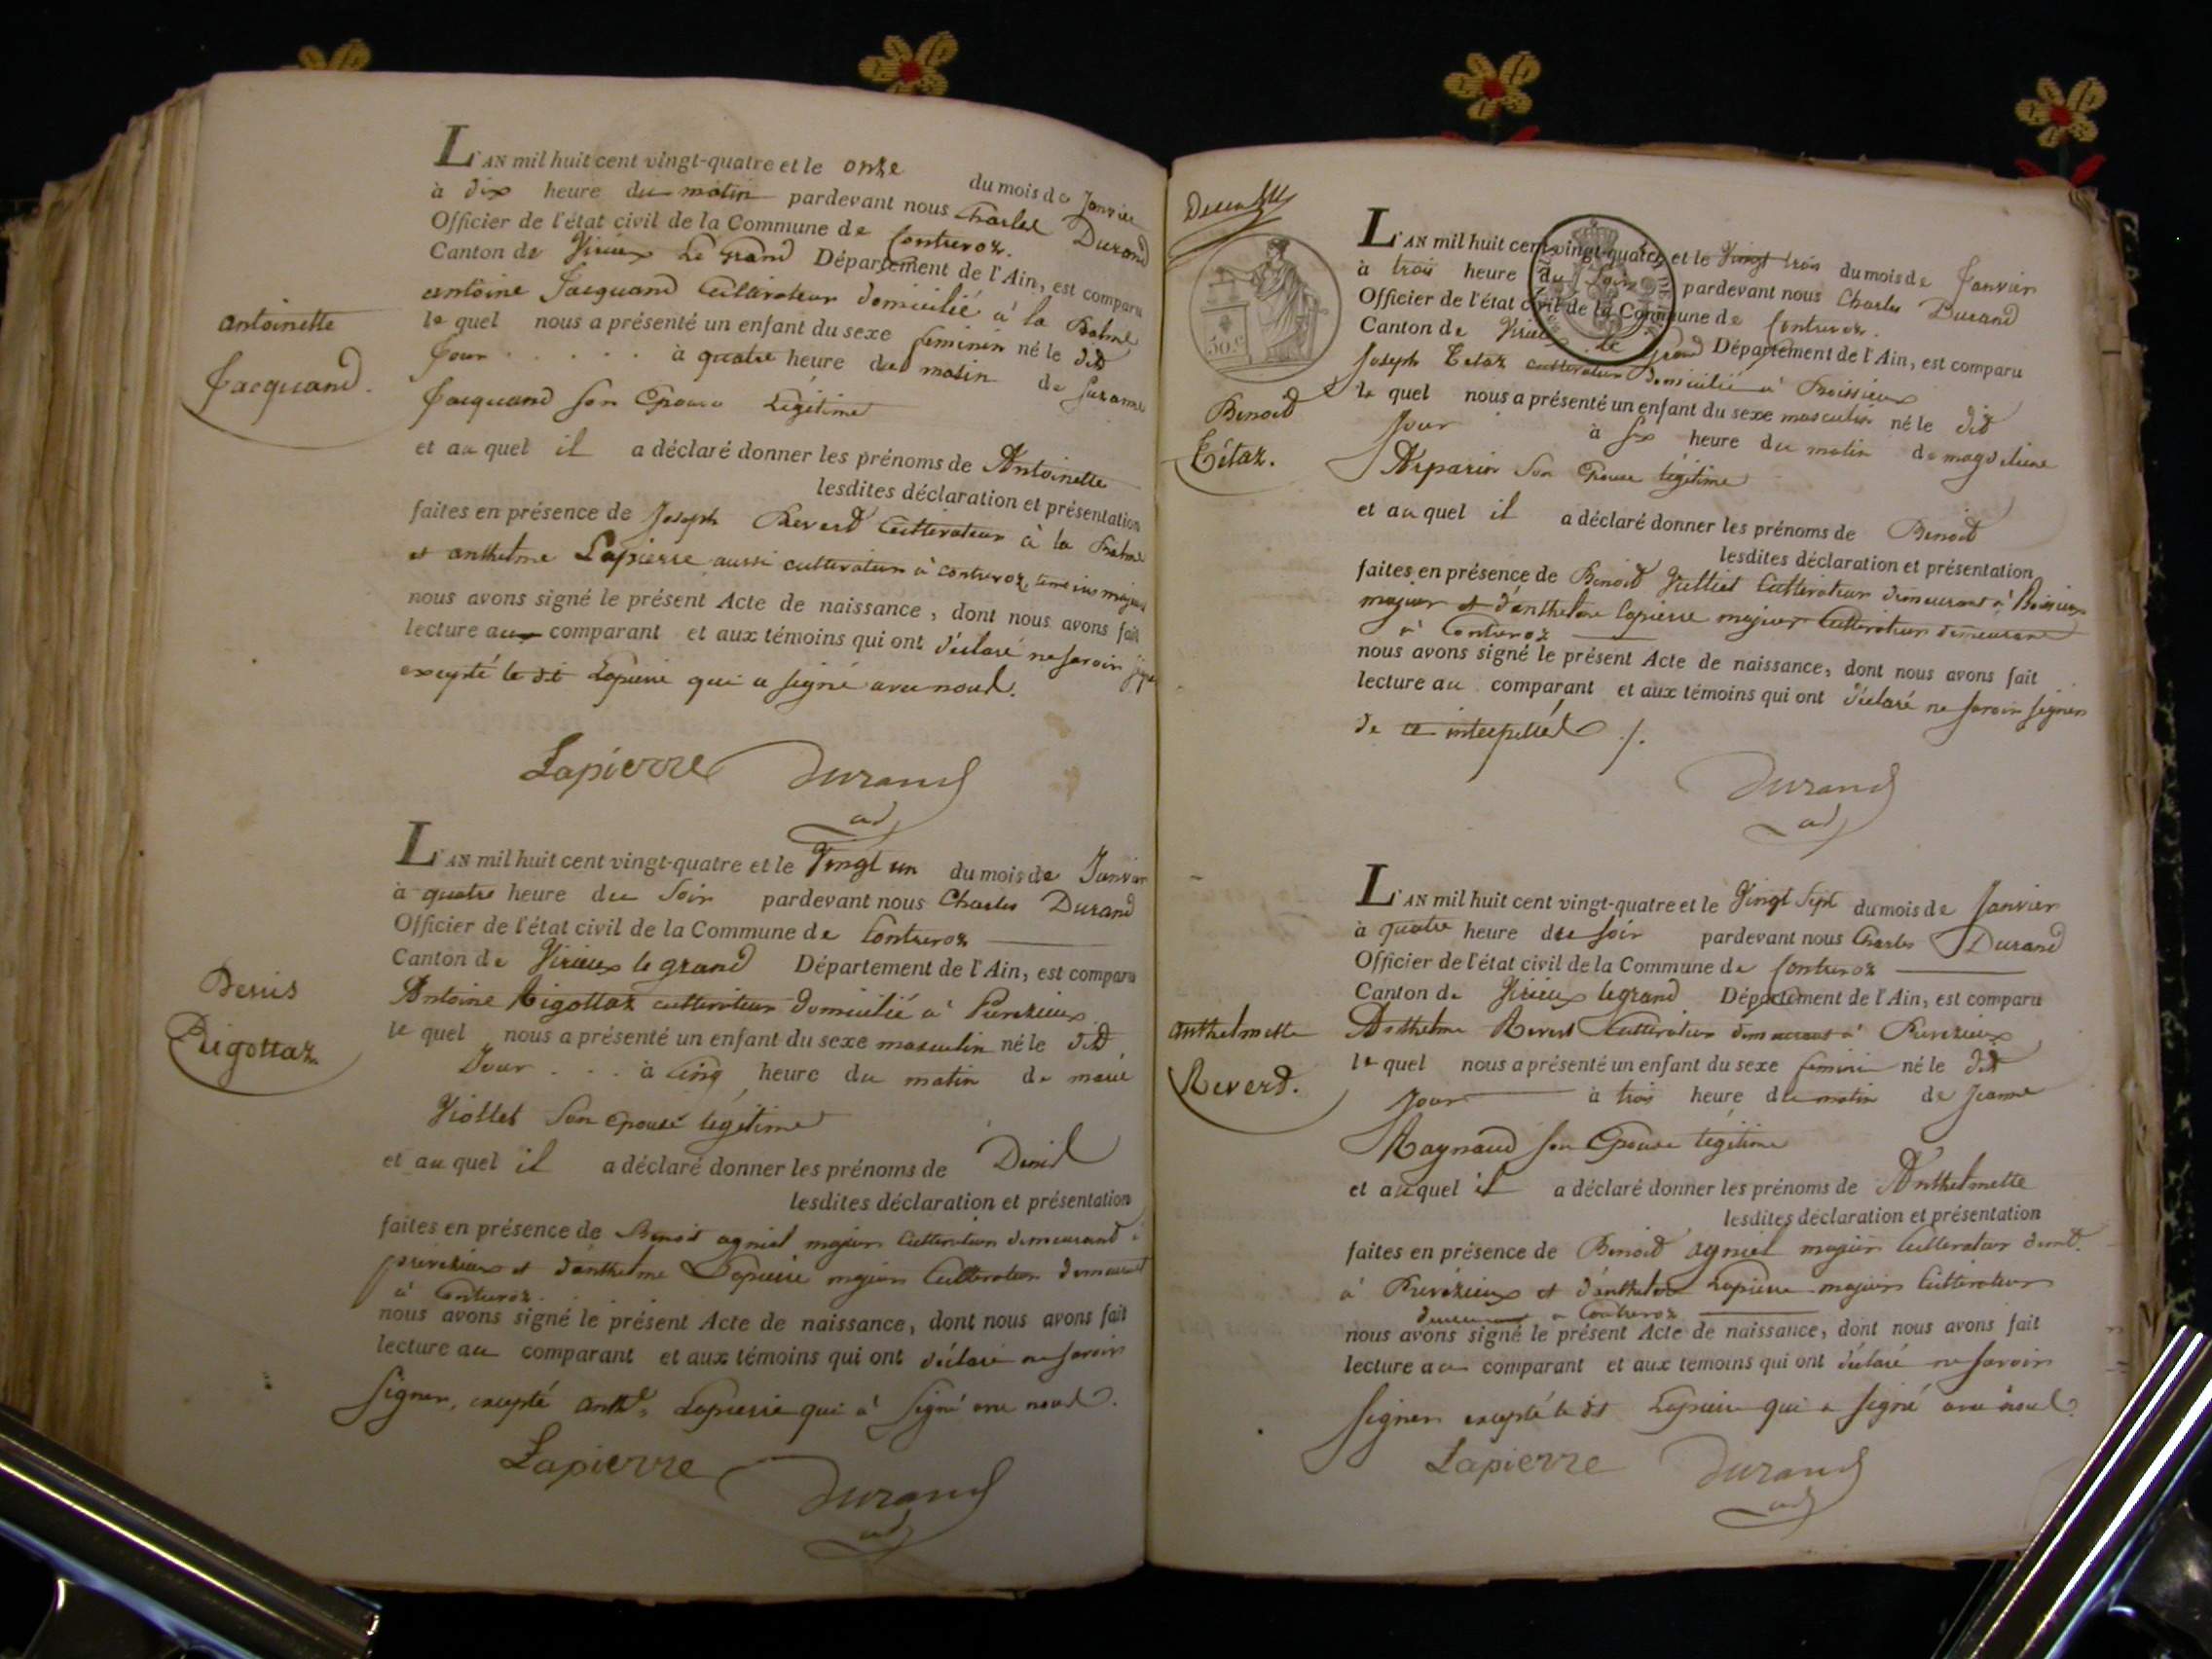 antoinette
Jacquand.
L'AN mil huit cent vingt-quatre et le onze du mois de Janvier
à dix heure du matin pardevant nous Charles Durand
Officier de l'état civil de la Commune de Contrevoz.
Canton de Virieux Le Grand Département de l'Ain, est comparu
antoine Jacquand Cultivateur domicilié à la Balme
le quel nous a présenté un enfant du sexe feminin né le dit
Jour . . . . . à quatre heure du matin de Suzanne
Jacquand son Epouse Légitime
et au quel il a déclaré donner les prénoms de Antoinette
lesdites déclaration et présentation
faites en présence de Joseph Reverd Cultivateur à la Balme
et anthelme Lapierre aussi cultivateur à contrevoz, temoins majeurs
nous avons signé le présent Acte de naissance, dont nous avons fait
lecture au comparant et aux témoins qui ont déclaré ne savoir signer
excepté le dt Lapierre qui a signé avec nous.
Lapierre Durand
adj
Denis
Rigottaz
L'AN mil huit cent vingt-quatre et le Vingt un du mois de Janvier
à quatre heure du Soir pardevant nous Charles Durand
Officier de l'état civil de la Commune de Contrevoz
Canton de Virieux le grand Département de l'Ain, est comparu
Antoine Rigottaz cultivateur domicilié à Preveizieux
le quel nous a présenté un enfant du sexe masculin né le dit
Jour . . . à Cinq heure du matin de marie
Viollet Son Epouse légitime
et au quel il a déclaré donner les prénoms de Denis
lesdites déclaration et présentation
faites en présence de Benoit agniel majeur Cultivateur demeurant à
preveizieux et d'anthelme Lapierre majeur Cultivateur demeurant
à Contrevoz.
nous avons signé le présent Acte de naissance, dont nous avons fait
lecture au comparant et aux témoins qui ont déclaré ne savoir
Signer, excepté anthe Lapierre qui à Signé avec nous.
Lapierre Durand
adj
50.c
Benoid
Tétaz.
L'AN mil huit cent vingt-quatre et le Vingt trois du mois de Janvier
à trois heure du Soir pardevant nous Charles Durand
Officier de l'état civil de la Commune de Contrevoz.
Canton de Virieux le Grand Département de l'Ain, est comparu
Joseph Tetaz cultivateur domicilié à Boissieux
le quel nous a présenté un enfant du sexe masculin né le dit
Jour à six heure du matin de magdeleine
Arparin Son Epouse légitime
et au quel il a déclaré donner les prénoms de Benoid
lesdites déclaration et présentation
faites en présence de Benoid Julliet Cultivateur demeurant à Boissieux
majeur et d'anthelme lapierre majeur Cultivateur demeurant
à Contrevoz
nous avons signé le présent Acte de naissance, dont nous avons fait
lecture au comparant et aux témoins qui ont déclaré ne savoir signer
de ce interpellés ./.
Durand
adj
anthelmette
Reverd.
L'AN mil huit cent vingt-quatre et le Vingt Sept du mois de Janvier
à quatre heure du soir pardevant nous Charles Durand
Officier de l'état civil de la Commune de Contrevoz
Canton de Virieux legrand Département de l'Ain, est comparu
Anthelme Reverd Cultivateur demeurant à Preveizieux
le quel nous a présenté un enfant du sexe feminin né le dit
Jour à trois heure du matin de Jeanne
Raynaud son Epouse légitime
et au quel il a déclaré donner les prénoms de Anthelmette
lesdites déclaration et présentation
faites en présence de Benoid agniel majeur Cultivateur demt.
à Preveizieux et d'anthelme Lapierre majeur Cultivateur
demeurant à Contrevoz
nous avons signé le présent Acte de naissance, dont nous avons fait
lecture au comparant et aux témoins qui ont déclaré ne savoir
Signer excepté le dt Lapierre qui a signé avec nous.
Lapierre Durand
adj